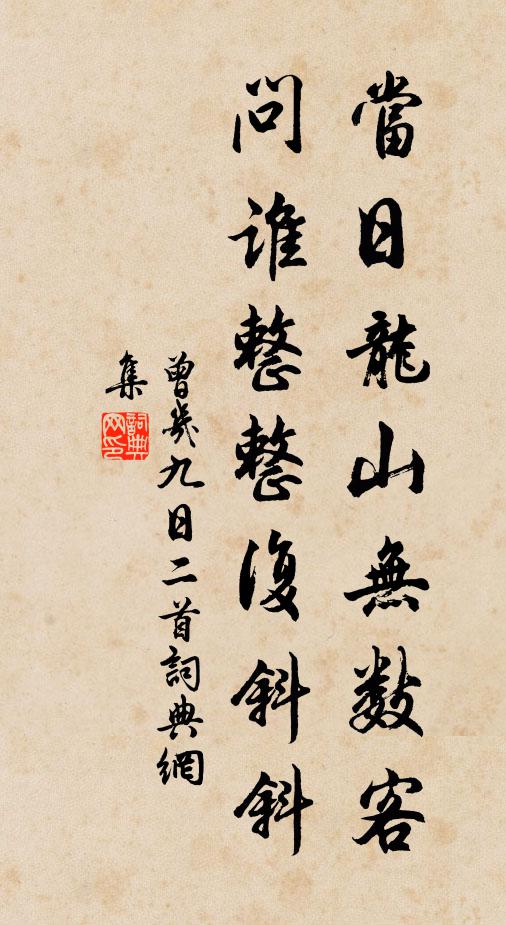 當日龍山無數客
問誰整整復斜斜
曾幾九日二首詞典網
集
詞典网印